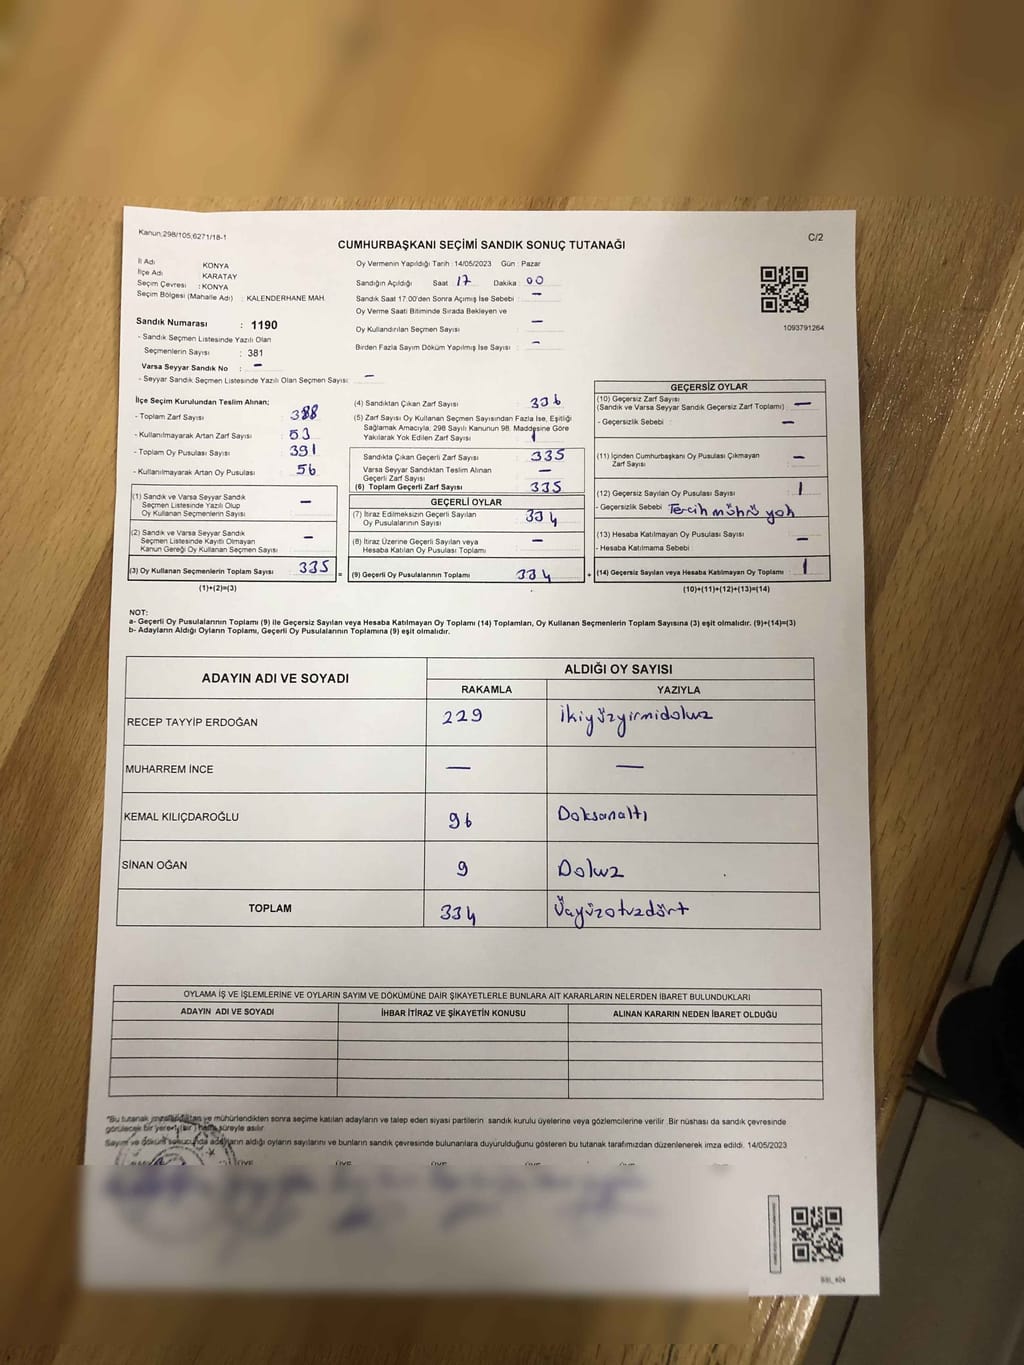 Kanun:298/105,6271/18-1
C/2
CUMHURBAŞKANI SEÇİMİ SANDIK SONUÇ TUTANAĞI
İl Adı KONYA
İlçe Adı KARATAY
Seçim Çevresi : KONYA
Seçim Bölgesi (Mahalle Adı) : KALENDERHANE MAH.
Sandık Numarası : 1190
- Sandık Seçmen Listesinde Yazılı Olan
Seçmenlerin Sayısı : 381
Varsa Seyyar Sandık No : –
- Seyyar Sandık Seçmen Listesinde Yazılı Olan Seçmen Sayısı: –
Oy Vermenin Yapıldığı Tarih : 14/05/2023 Gün : Pazar
Sandığın Açıldığı Saat 17 Dakika : 00
Sandık Saat 17.00'den Sonra Açımış İse Sebebi : –
Oy Verme Saati Bitiminde Sırada Bekleyen ve
Oy Kullandırılan Seçmen Sayısı –
Birden Fazla Sayım Döküm Yapılmış İse Sayısı : –
1093791264
İlçe Seçim Kurulundan Teslim Alınan;
- Toplam Zarf Sayısı 388
- Kullanılmayarak Artan Zarf Sayısı : 53
- Toplam Oy Pusulası Sayısı : 391
- Kullanılmayarak Artan Oy Pusulası : 56
(1) Sandık ve Varsa Seyyar Sandık
Seçmen Listesinde Yazılı Olup
Oy Kullanan Seçmenlerin Sayısı –
(2) Sandık ve Varsa Seyyar Sandık
Seçmen Listesinde Kayıtlı Olmayan
Kanun Gereği Oy Kullanan Seçmen Sayısı –
(3) Oy Kullanan Seçmenlerin Toplam Sayısı 335 =
(1)+(2)=(3)
(4) Sandıktan Çıkan Zarf Sayısı : 336
(5) Zarf Sayısı Oy Kullanan Seçmen Sayısından Fazla İse, Eşitliği
Sağlamak Amacıyla; 298 Sayılı Kanunun 98. Maddesine Göre
Yakılarak Yok Edilen Zarf Sayısı 1
Sandıkta Çıkan Geçerli Zarf Sayısı : 335
Varsa Seyyar Sandıktan Teslim Alınan
Geçerli Zarf Sayısı –
(6) Toplam Geçerli Zarf Sayısı : 335
GEÇERLİ OYLAR
(7) İtiraz Edilmeksizin Geçerli Sayılan
Oy Pusulalarının Sayısı : 334
(8) İtiraz Üzerine Geçerli Sayılan veya
Hesaba Katılan Oy Pusulası Toplamı –
(9) Geçerli Oy Pusulalarının Toplamı 334 +
GEÇERSİZ OYLAR
(10) Geçersiz Zarf Sayısı
(Sandık ve Varsa Seyyar Sandık Geçersiz Zarf Toplamı) –
- Geçersizlik Sebebi : –
(11) İçinden Cumhurbaşkanı Oy Pusulası Çıkmayan
Zarf Sayısı –
(12) Geçersiz Sayılan Oy Pusulası Sayısı : 1
- Geçersizlik Sebebi Tercih mührü yok
(13) Hesaba Katılmayan Oy Pusulası Sayısı –
- Hesaba Katılmama Sebebi
(14) Geçersiz Sayılan veya Hesaba Katılmayan Oy Toplamı : 1
(10)+(11)+(12)+(13)=(14)
NOT:
a- Geçerli Oy Pusulalarının Toplamı (9) ile Geçersiz Sayılan veya Hesaba Katılmayan Oy Toplamı (14) Toplamları, Oy Kullanan Seçmenlerin Toplam Sayısına (3) eşit olmalıdır. (9)+(14)=(3)
b- Adayların Aldığı Oyların Toplamı, Geçerli Oy Pusulalarının Toplamına (9) eşit olmalıdır.
ADAYIN ADI VE SOYADI ALDIĞI OY SAYISI
RAKAMLA YAZIYLA
RECEP TAYYİP ERDOĞAN 229 İkiyüzyirmidokuz
MUHARREM İNCE – –
KEMAL KILIÇDAROĞLU 96 Doksanaltı
SİNAN OĞAN 9 Dokuz
TOPLAM 334 Üçyüzotuzdört
OYLAMA İŞ VE İŞLEMLERİNE VE OYLARIN SAYIM VE DÖKÜMÜNE DAİR ŞİKAYETLERLE BUNLARA AİT KARARLARIN NELERDEN İBARET BULUNDUKLARI
ADAYIN ADI VE SOYADI İHBAR İTİRAZ VE ŞİKAYETİN KONUSU ALINAN KARARIN NEDEN İBARET OLDUĞU
"Bu tutanak imzalandıktan ve mühürlendikten sonra seçime katılan adayların ve talep eden siyasi partilerin sandık kurulu üyelerine veya gözlemcilerine verilir. Bir nüshası da sandık çevresinde
görülecek bir yere 1 (bir) hafta süreyle asılır.
Sayım ve döküm sonucunda adayların aldığı oyların sayılarını ve bunların sandık çevresinde bulunanlara duyurulduğunu gösteren bu tutanak tarafımızdan düzenlenerek imza edildi. 14/05/2023